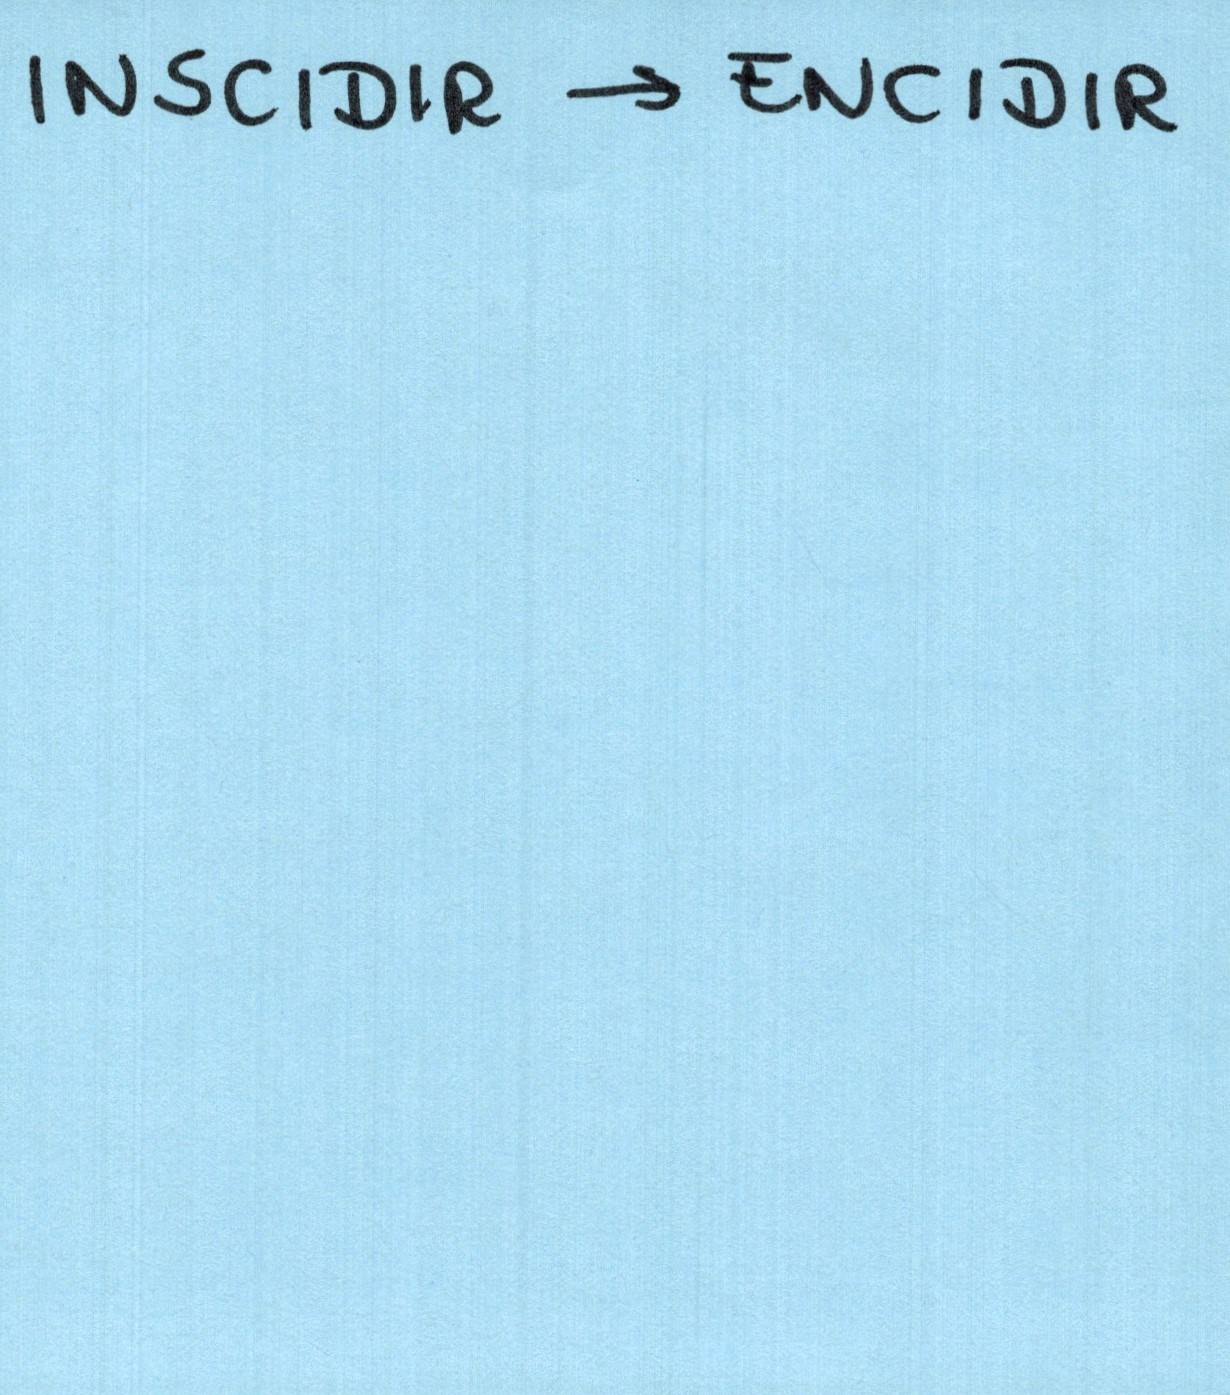 INSCIDIR → ENCIDIR